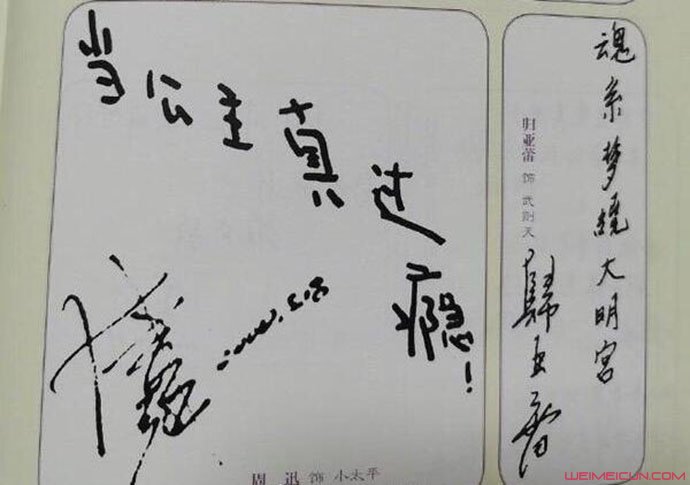 当公主真过瘾！
周 迅 饰 小太平
魂系梦绕大明宫
归亚蕾 饰 武则天
歸亚蕾
WEIMEICUN.COM